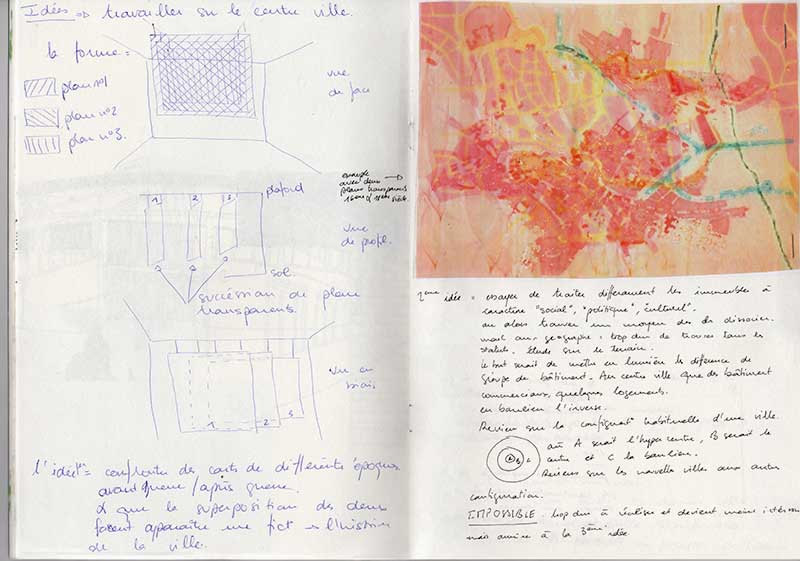 Idées => travailler sur le centre ville.
la forme =
plan n°1
plan n°2
plan n°3.
vue
de face
1 2 3
plafond
vue
de profil.
sol.
succéssion de plans
transparents.
vue en
biais
1 2 3
l'idée 1ère = confronter des carts de différentes époques
avant guerre / après guerre.
et que la superposition des deux
fassent apparaître une fict° => l'histoire
de la ville.
exemple
avec deux
plans transparents
16ème et
2ème idée = essayer de traiter différament les immeubles à
caractère "social", "politique", "culturel".
ou alors trouver un moyen des dissocier.
mail aux geographe : trop dur de trouver tous les
statuts. Etude sur le terrain.
le but serait de mettre en lumière la différence de
groupe de bâtiment. Au centre ville que des bâtiment
commerciaux, quelques logements.
en banlieu l'inverse.
Revien sur la configurat° habituelle d'une ville
A B C
où A serait l'hyper centre, B serait le
centre et C la banlieu.
Reviens sur les nouvelles villes aux autres
configuration.
IMPOSSIBLE. trop dur à réaliser et devient moins intéressant
mais amène à la 3ème idée